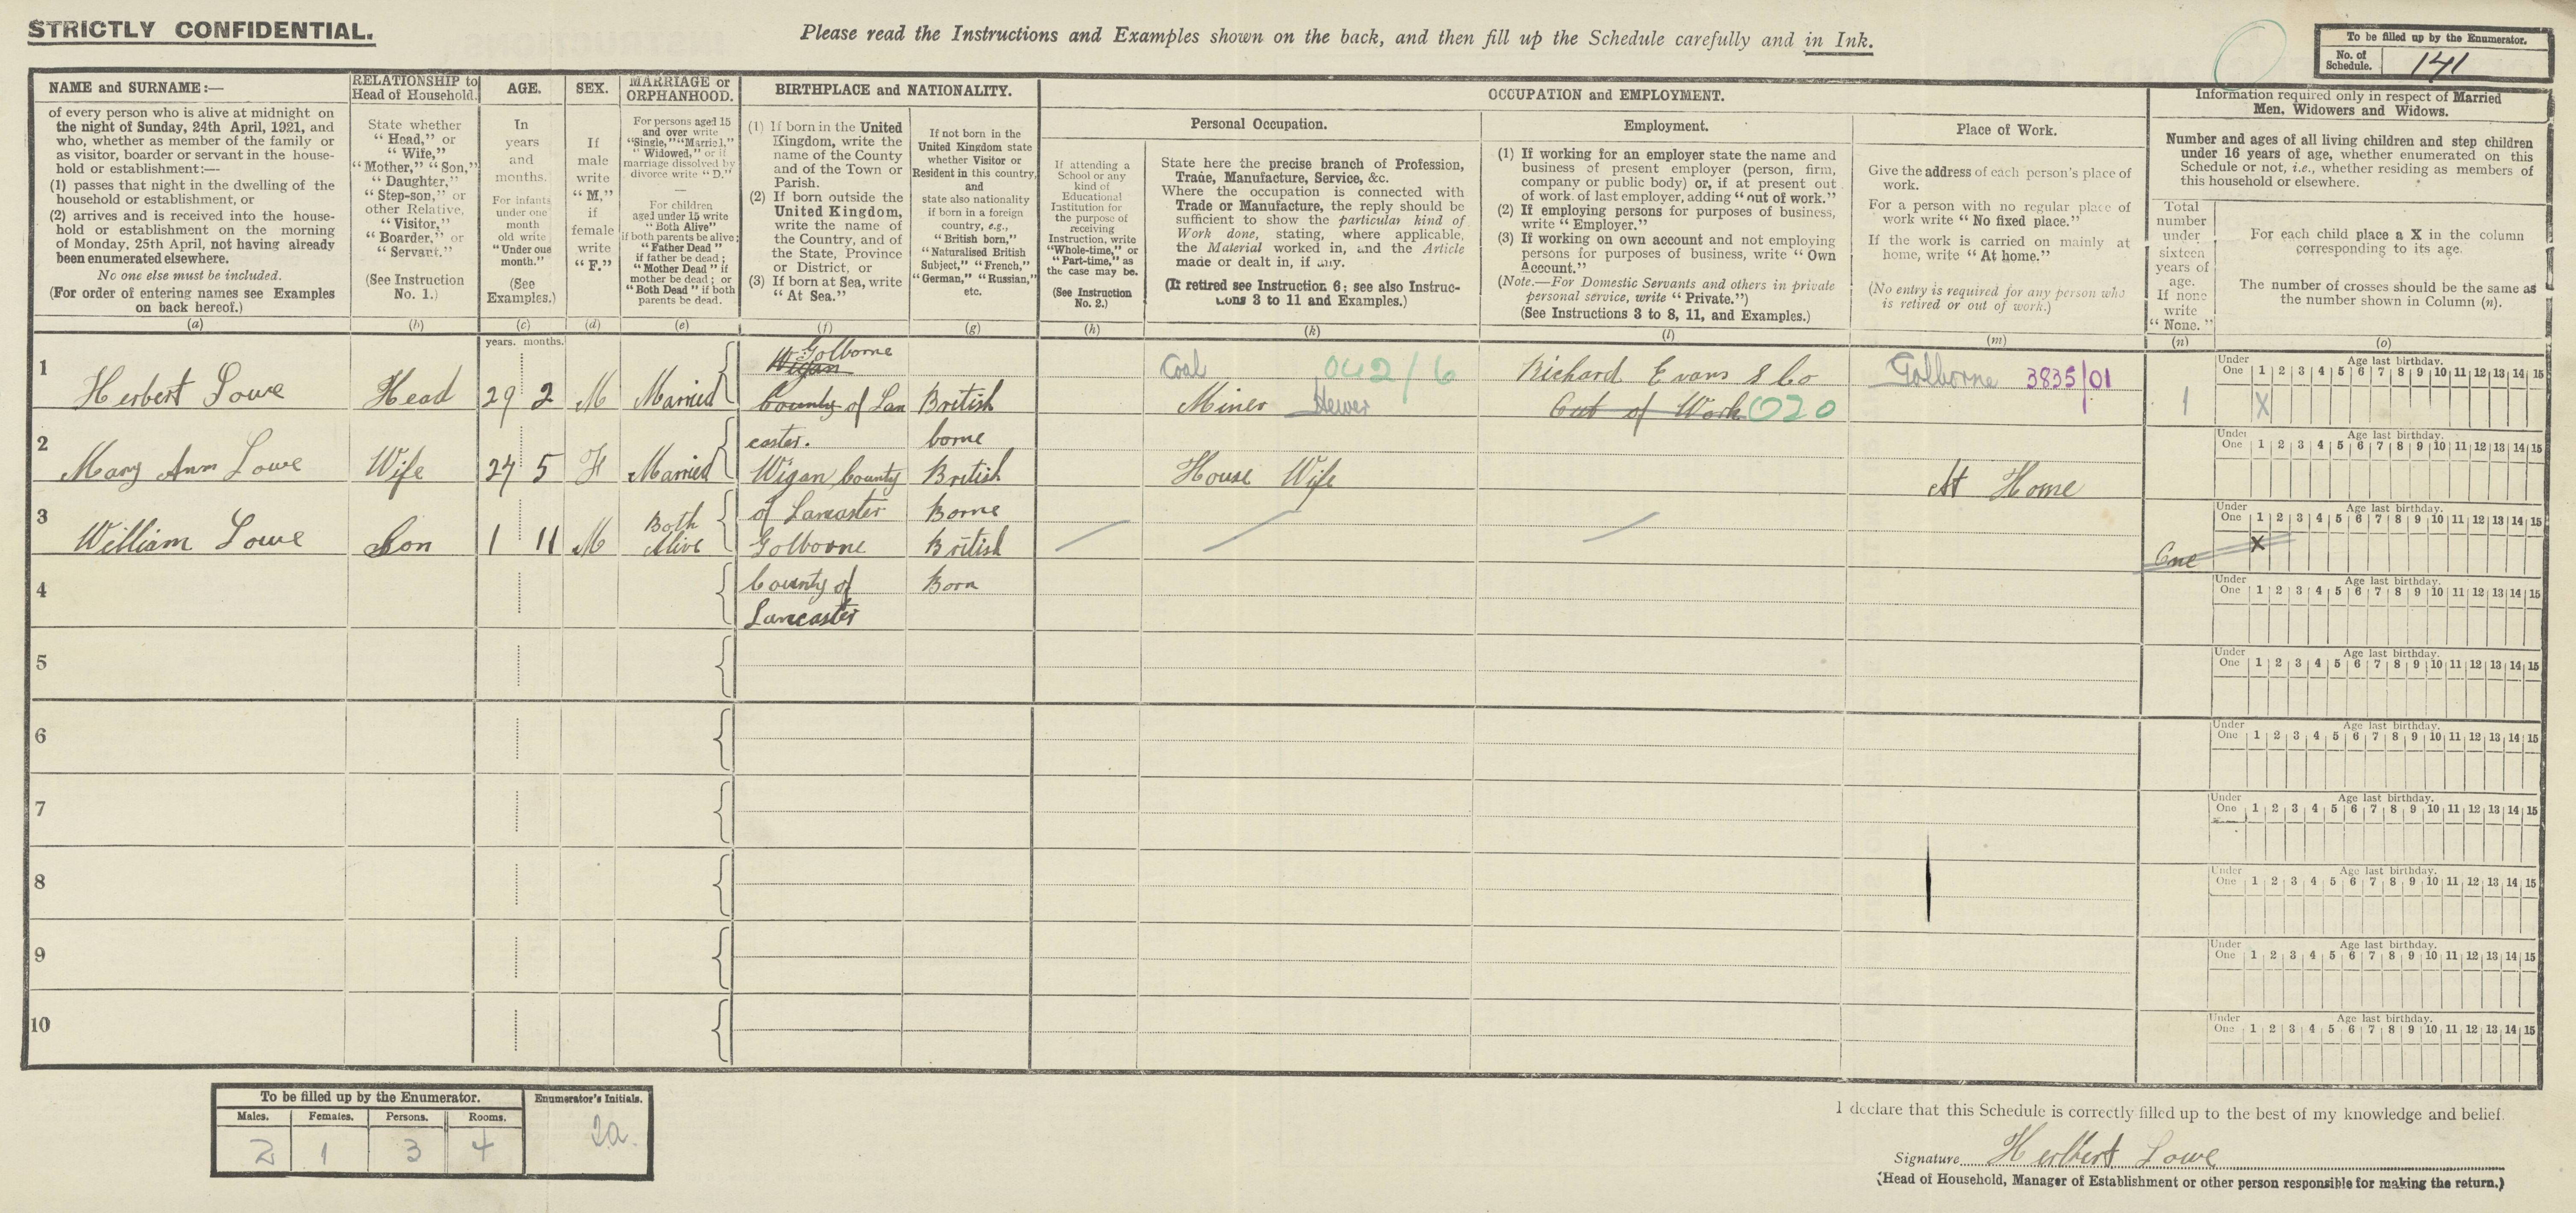 STRICTLY CONFIDENTIAL.
Please read the Instructions and Examples shown on the back, and then fill up the Schedule carefully and in Ink.
To be filled up by the Enumerator.
No. of Schedule. 141
NAME and SURNAME:—
of every person who is alive at midnight on
the night of Sunday, 24th April, 1921, and
who, whether as member of the family or
as visitor, boarder or servant in the house-
hold or establishment:—
(1) passes that night in the dwelling of the
household or establishment, or
(2) arrives and is received into the house-
hold or establishment on the morning
of Monday, 25th April, not having already
been enumerated elsewhere.
No one else must be included.
(For order of entering names see Examples
on back hereof.)
(a)
RELATIONSHIP to
Head of Household.
State whether
"Head," or
"Wife,"
"Mother," "Son,"
"Daughter,"
"Step-son," or
other Relative,
"Visitor,"
"Boarder," or
"Servant."
(See Instruction
No. 1.)
(b)
AGE.
In
years
and
months.
For infants
under one
month
old write
"Under one
month."
(See
Examples.)
(c)
SEX.
If
male
write
"M,"
if
female
write
"F."
(d)
MARRIAGE or
ORPHANHOOD.
For persons aged 15
and over write
"Single," "Married,"
"Widowed," or if
marriage dissolved by
divorce write "D."
—
For children
aged under 15 write
"Both Alive"
if both parents be alive;
"Father Dead"
if father be dead;
"Mother Dead" if
mother be dead; or
"Both Dead" if both
parents be dead.
(e)
BIRTHPLACE and NATIONALITY.
(1) If born in the United
Kingdom, write the
name of the County
and of the Town or
Parish.
(2) If born outside the
United Kingdom,
write the name of
the Country, and of
the State, Province
or District, or
(3) If born at Sea, write
"At Sea."
(f)
If not born in the
United Kingdom state
whether Visitor or
Resident in this country,
and
state also nationality
if born in a foreign
country, e.g.,
"British born,"
"Naturalised British
Subject," "French,"
"German," "Russian,"
etc.
(g)
OCCUPATION and EMPLOYMENT.
If attending a
School or any
kind of
Educational
Institution for
the purpose of
receiving
Instruction, write
"Whole-time," or
"Part-time," as
the case may be.
(See Instruction
No. 2.)
(h)
Personal Occupation.
State here the precise branch of Profession,
Trade, Manufacture, Service, &c.
Where the occupation is connected with
Trade or Manufacture, the reply should be
sufficient to show the particular kind of
Work done, stating, where applicable,
the Material worked in, and the Article
made or dealt in, if any.
(If retired see Instruction 6; see also Instruc-
tions 3 to 11 and Examples.)
(k)
Employment.
(1) If working for an employer state the name and
business of present employer (person, firm,
company or public body) or, if at present out
of work, of last employer, adding "out of work."
(2) If employing persons for purposes of business,
write "Employer."
(3) If working on own account and not employing
persons for purposes of business, write "Own
Account."
(Note.—For Domestic Servants and others in private
personal service, write "Private.")
(See Instructions 3 to 8, 11, and Examples.)
(l)
Place of Work.
Give the address of each person's place of
work.
For a person with no regular place of
work write "No fixed place."
If the work is carried on mainly at
home, write "At home."
(No entry is required for any person who
is retired or out of work.)
(m)
Information required only in respect of Married
Men, Widowers and Widows.
Number and ages of all living children and step children
under 16 years of age, whether enumerated on this
Schedule or not, i.e., whether residing as members of
this household or elsewhere.
Total
number
under
sixteen
years of
age.
If none
write
"None."
(n)
For each child place a X in the column
corresponding to its age.
The number of crosses should be the same as
the number shown in Column (n).
(o)
years. months.
1
Herbert Lowe Head 29 2 M Married
Golborne
Wigan
County of Lan British
Coal 042/6
Miner Hewer
Richard Evans & Co
Out of Work 020
Golborne 3835/01
1
Under One Age last birthday. 1 2 3 4 5 6 7 8 9 10 11 12 13 14 15
X
2
caster. borne
Mary Ann Lowe Wife 27 5 F Married Wigan County British House Wife At Home
Under One Age last birthday. 1 2 3 4 5 6 7 8 9 10 11 12 13 14 15
3
of Lancaster Borne
William Lowe Son 1 11 M Both Alive Golborne British
One
Under One Age last birthday. 1 2 3 4 5 6 7 8 9 10 11 12 13 14 15
X
4
County of Born
Lancaster
Under One Age last birthday. 1 2 3 4 5 6 7 8 9 10 11 12 13 14 15
5
Under One Age last birthday. 1 2 3 4 5 6 7 8 9 10 11 12 13 14 15
6
Under One Age last birthday. 1 2 3 4 5 6 7 8 9 10 11 12 13 14 15
7
Under One Age last birthday. 1 2 3 4 5 6 7 8 9 10 11 12 13 14 15
8
Under One Age last birthday. 1 2 3 4 5 6 7 8 9 10 11 12 13 14 15
9
Under One Age last birthday. 1 2 3 4 5 6 7 8 9 10 11 12 13 14 15
10
Under One Age last birthday. 1 2 3 4 5 6 7 8 9 10 11 12 13 14 15
To be filled up by the Enumerator.
Enumerator's Initials.
Males. Females. Persons. Rooms.
2 1 3 4
I declare that this Schedule is correctly filled up to the best of my knowledge and belief.
Signature Herbert Lowe
(Head of Household, Manager of Establishment or other person responsible for making the return.)